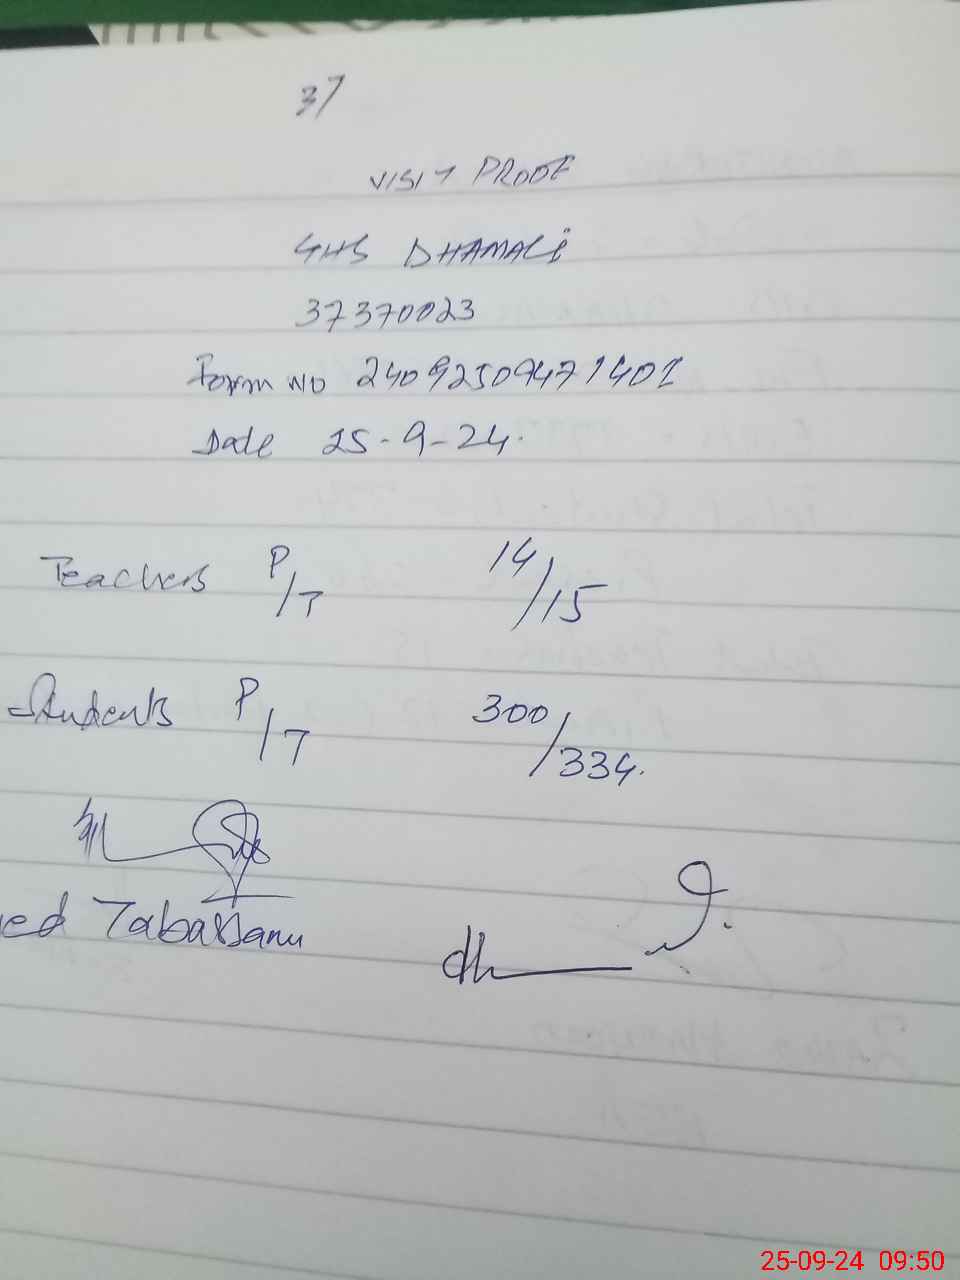 37
VISIT PROOF
GHS DHAMALI
37370023
Form no 24092509471401
Date 25-9-24.
Teachers P/T 14/15
Students P/T 300/334.
ed Tabassam
25-09-24 09:50